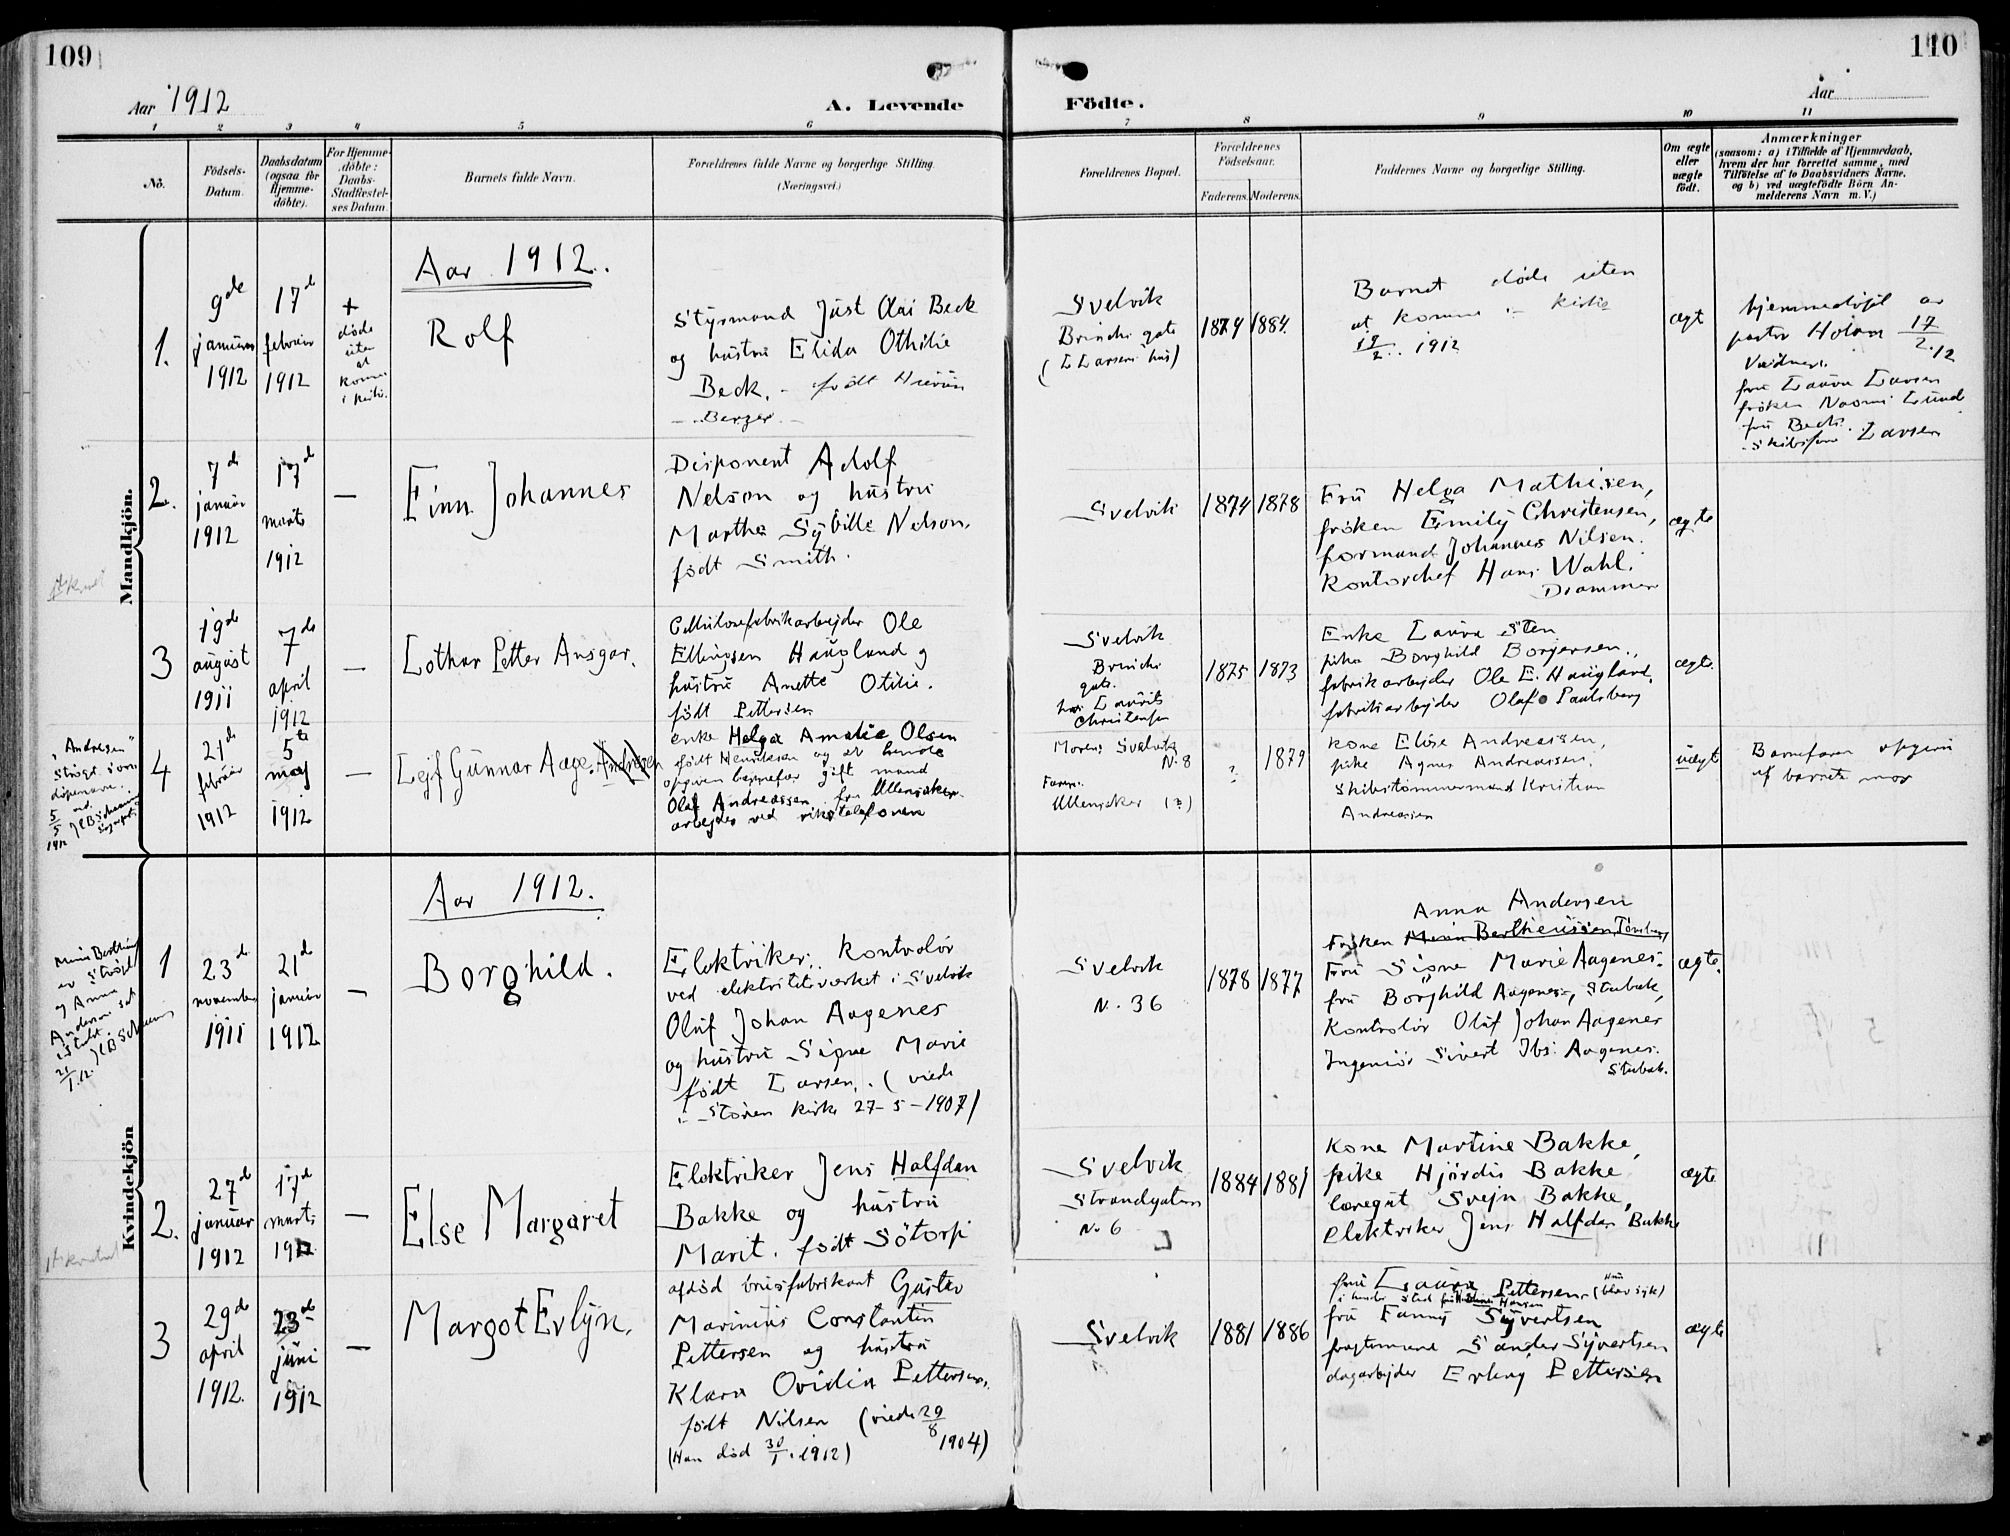 109
110
Aar 1912
A. Levende
Födte.
Aar
1 2 3 4 5 6 7 8 9 10 11
Nò.
Födsels-
Datum.
Daabsdatum
(ogsaa for
Hjemme-
döbte).
For Hjemme-
döbte:
Daabs-
Stadfæstel-
ses Datum.
Barnets fulde Navn.
Forældrenes fulde Navne og borgerlige Stilling.
(Næringsvei.)
Forældrenes Bopæl.
Forældrenes
Födselsaar.
Faderens. Moderens.
Faddernes Navne og borgerlige Stilling.
Om ægte
eller
uægte
födt.
Anmærkninger
(saasom: a) i Tilfælde af Hjemmedaab,
hvem der har forrettet samme, med
Tilföielse af to Daabsvidners Navne,
og b) ved uægtefödte Börn An-
melderens Navn m. V.)
Mandkjön.
Aar 1912.
1.
9de
januar
1912
17d
februar
1912
+
døde
uten
at
komme
i kirke.
Rolf
Styrmand Just Olai Beck
og hustru Elida Othilie
Beck. - født
Berger
Svelvik
Brinchs gate
(L Larsens hus)
1879
1884.
Barnet døde uten
at komme i kirke
19/2 1912
ægt
hjemmedøpt av
pastor Holm 17/2.12
Vidner:
fru Laura Larsen
frøken Naomi Lund
fru Beck.
Larsen
2.
7d
januar
1912
17d
marts
1912
—
Finn Johannes
Disponent Adolf
Nelson og hustru
Martha Sybille Nelson.
født Smith.
Svelvik
1874
1878
Fru Helga Mathisen,
frøken Emily Christensen,
formand Johannes Nilsen.
Kontorchef Hans Wahl.
Drammen
ægte
3
19de
august
1911
7de
april
1912
—
Lothar Petter Ansgar.
Cellulosefabrikarbejder Ole
Ellingsen Haugland og
hustru Anette Otilie.
født Pettersen
Svelvik
Brinchs
gate.
hos Laurits
Christensen
1875
1873
Enke Laura Sten
pike Borghild Borgersen.,
fabrikarbejder Ole E. Haugland,
fabrikarbejder Olaf Paulsberg
ægte.
"Andresen"
strøgs som
ved
5/5
1912
4
21de
februar
1912
5te
maj
1912
—
Lejf Gunnar Aage. Andresen
enke Helga Amalie Olsen
født Henriksen og at hende
opgiven barnefar gift mand
Olaf Andreassen fra Ullensaker.
arbejder ved rikstelefonen
Morens Svelvik
N. 8
Farens:
Ullensaker (?)
?
1879
Kone Elise Andreassen,
pike Agnes Andreassen.
skibstømmermand Kristian
Andreassen
uægt
Barnefaren opgivet
af barnets mor
Kvindekjön
Aar 1912.
er strøget
og Anna
Andersen sat
istedet
21/1.12.
1
23d.
november
1911
21d
januar
1912
—
Borghild.
Elektriker. Kontrolør
ved elektrisitetsverket i Svelvik
Oluf Johan Aagenes
og hustru Signe Marie
født Larsen. (viede
i Støren kirke 27-5-1907)
Svelvik
N. 36
1878
1877
Anna Andersen
Frøken Bertheussen, Tønsberg
Fru Signe Marie Aagenes.
fru Borghild Aagenes, Stubak,
Kontrolør Oluf Johan Aagenes
Ingeniør Sivert Ibs. Aagenes.
Stubak.
ægte.
2.
27d
januar
1912
17d
marts
1912
—
Else Margaret
Elektriker Jens Halfdan
Bakke og hustru
Marit. født Søtorp
Svelvik
Strandgaten
N. 6
1884
1881
Kone Martine Bakke,
pike Hjørdis Bakke
læregut Svejn Bakke,
elektriker Jens Halfdan Bakke
ægte
3
29de
april
1912.
23de
juni
1912
—
Margot Evlyn.
afdød brusfabrikant Gustav
Marinius Constantin
Pettersen og hustru
Klara Ovidia Pettersen.
født Nilsen (viede 29/8
1904)
(Han død 30/1.1912)
Svelvik
1881
1886
fru Laura Pettersen. (blev syk)
i hendes sted Hansen
fru Fanny Syvertsen
fragtemand Sander Syvertsen
dagarbejder Erling Pettersen
ægte